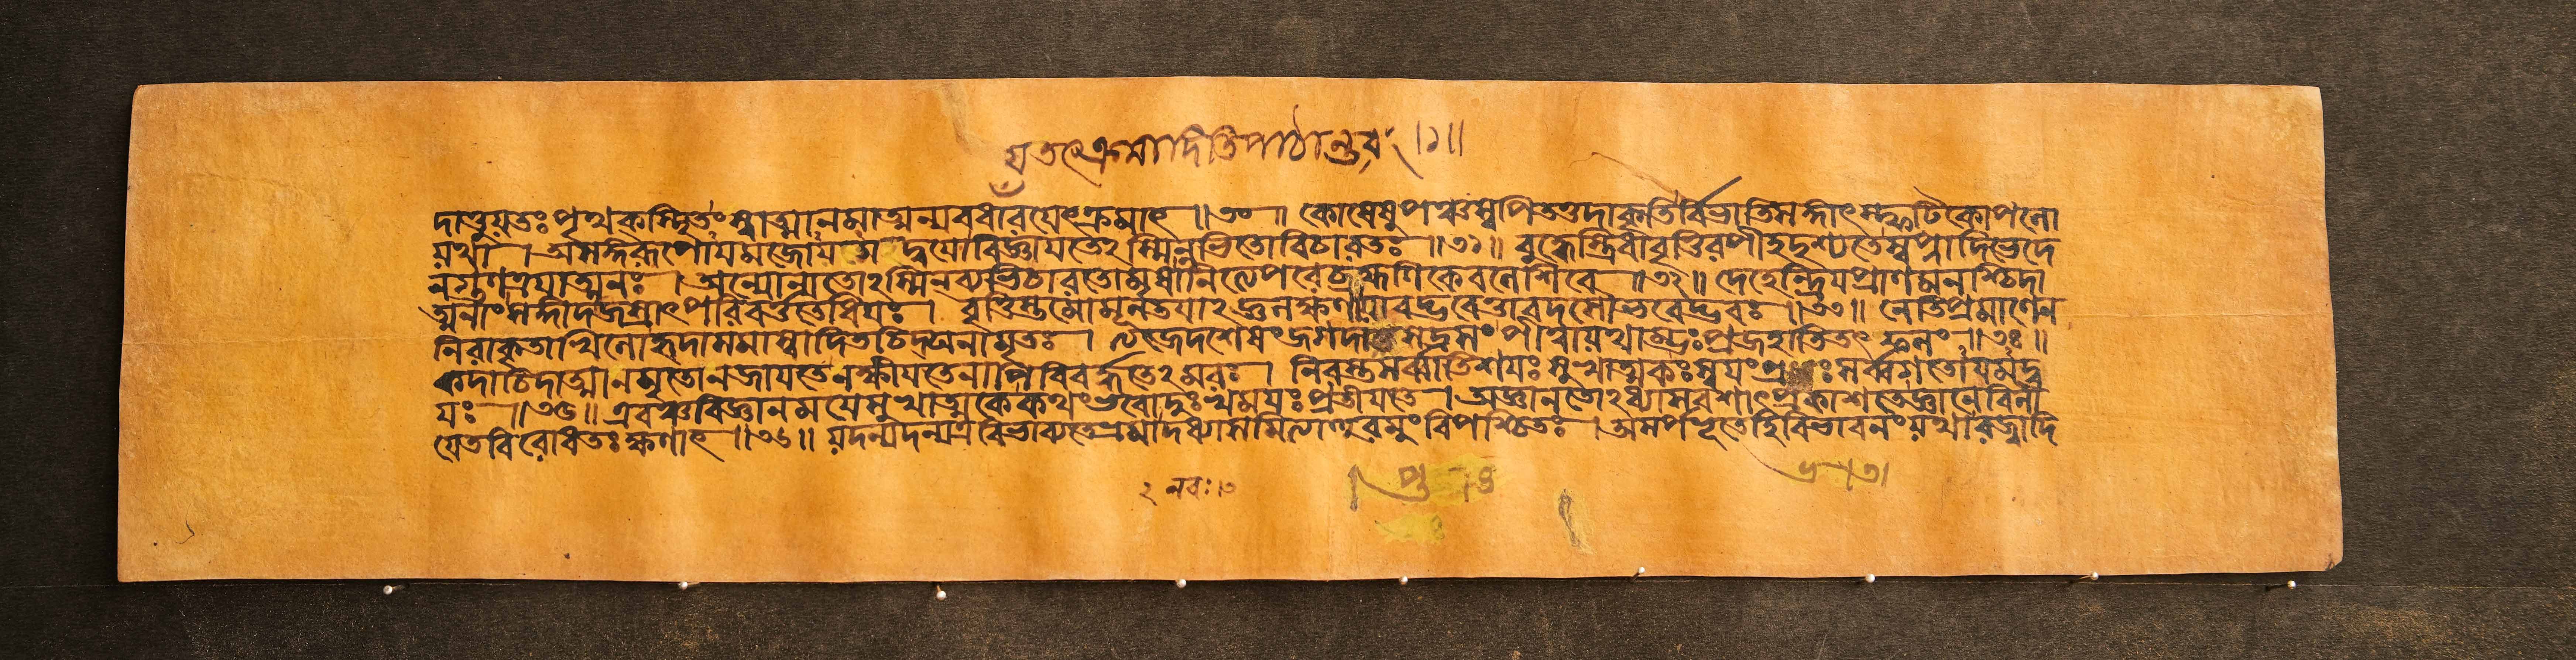 যতএৱেত্যাদিতিপাঠান্তরং ॥১॥
দাত্যুয়তঃ পৃথকস্মিদ্বুতং স্বাত্মানমাত্মন্যবধারয়েৎক্রমাৎ ॥৩০॥ কোষেষুপঞ্চস্বপিতত্তদাকৃতির্বিভাতিসঙ্গাৎস্ফটিকোপলো
যথা । অসঙ্গরূপোয়মজোয়তোদ্বয়োবিজ্ঞায়তেঽস্মিন্নভিতোবিচারতঃ ॥৩১॥ বুদ্ধেস্ত্রিধাবৃত্তিরপীহদৃশ্যতেস্বপ্নাদিভেদে
নগুণত্রয়াত্মনঃ । অন্যোন্যতোঽস্মিনব্যভিচারতোমৃষানিত্যেপরেব্রহ্মণিকেবলেশিবে ॥৩২॥ দেহেন্দ্রিয়প্রাণমনশ্চিদা
ত্মনাংসঙ্ঘাদজস্রংপরিবর্ত্ততেধিয়ঃ । বৃত্তিস্তমোমূলতয়াঽজ্ঞলক্ষণায়াবদ্ভবেত্তাবদসৌভবেদ্ভবঃ ॥৩৩॥ নেতিপ্রমাণেন
নিরাকৃতাখিলোহৃদাসমাস্বাদিতচিদ্ঘনামৃতঃ । ত্যজেদশেষংজগদাত্তসদ্রসংপীত্বায়থাম্ভঃপ্রজহাতিতৎফলং ॥৩৪॥
কদাচিদাত্মানমৃতোনজায়তেনক্ষীয়তেনাপিবিবর্দ্ধতেঽমরঃ । নিরস্তসর্ব্বাতিশয়ঃসুখাত্মকঃস্বয়ংপ্রভঃসর্ব্বগতোয়মদ্ব
য়ঃ ॥৩৫॥ এবঞ্চবিজ্ঞানময়েসুখাত্মকেকথংভবোদুঃখময়ঃপ্রতীয়তে । অজ্ঞানতোঽধ্যাসবশাৎপ্রকাশতেজ্ঞানেবিলী
য়েতবিরোধতঃক্ষণাৎ ॥৩৬॥ যদন্যদন্যত্রবিভাব্যতেভ্রমাদধ্যাসমিত্যাহুরমুংবিপশ্চিতঃ । অসর্পভূতেহিবিভাবনংয়থারজ্জ্বাদি
২ নবঃ ।৩